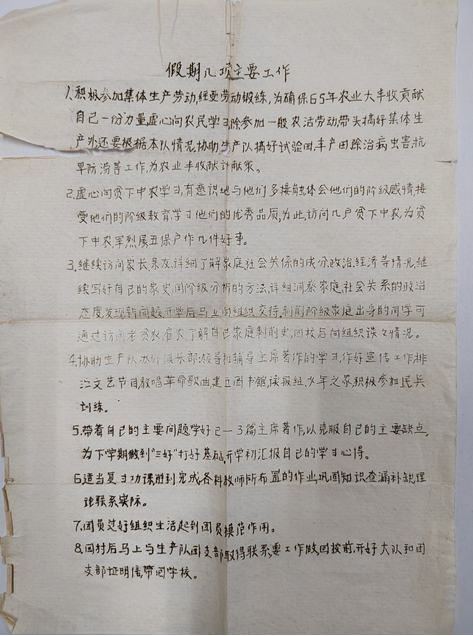 假期几项主要工作
1.积极参加集体生产劳动,经受劳动锻练,为确保65年农业大丰收贡献
自己一份力量虚心向农民学习,除参加一般农活劳动带头搞好集体生
产外还要根据本队情况协助生产队搞好试验田,丰产田除治病虫害,抗
旱防涝等工作,为农业丰收献计献策。
2.虚心向贫下中农学习,有意识地与他们多接触体会他们的阶级感情,接
受他们的阶级教育,学习他们的优秀品质,为此,访问几户贫下中农,为贫
下中农军烈属五保户作几件好事。
3.继续访问家长,亲友,详细了解家庭,社会关系的成分政治,经济等情况,继
续写好自己的家史,用阶级分析的方法,详细洞察家庭,社会关系的政治
态度发现新问题开学后马上向组织交待,剥削阶级家庭出身的同学可
通过访问老贫农雇农了解自己家庭剥削史,回校后向组织谈情况。
4.协助生产队办好俱乐部,领导和辅导主席著作的学习,作好宣传工作,排
演文艺节目教唱革命歌曲建立图书馆,读报组,少年之家,积极参加民兵
训练。
5.带着自己的主要问题学好2—3篇主席著作,以克服自己的主要缺点,
为下学期做到"三好"打好基础,开学初汇报自己的学习心得。
6.适当复习功课,做到完成各科教师所布置的作业,巩固知识查漏补缺,理
论联系实际。
7.团员过好组织生活起到团员模范作用。
8.回村后马上与生产队团支部取得联系,要工作做,回校前,开好大队和团
支部证明信,带回学校。